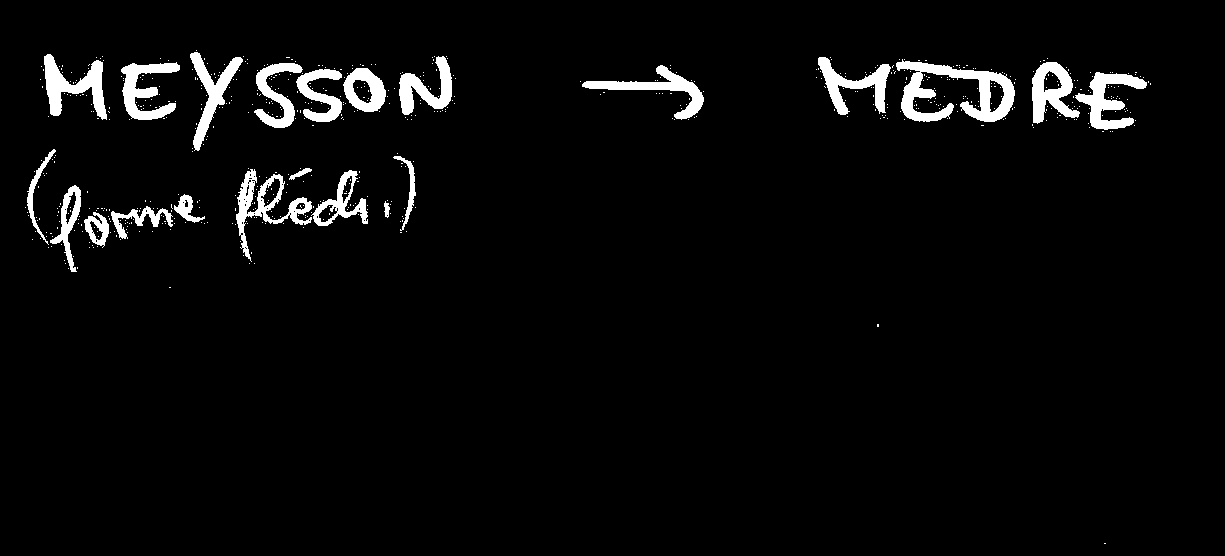 MEYSSON → MEDRE
(forme fléch.)